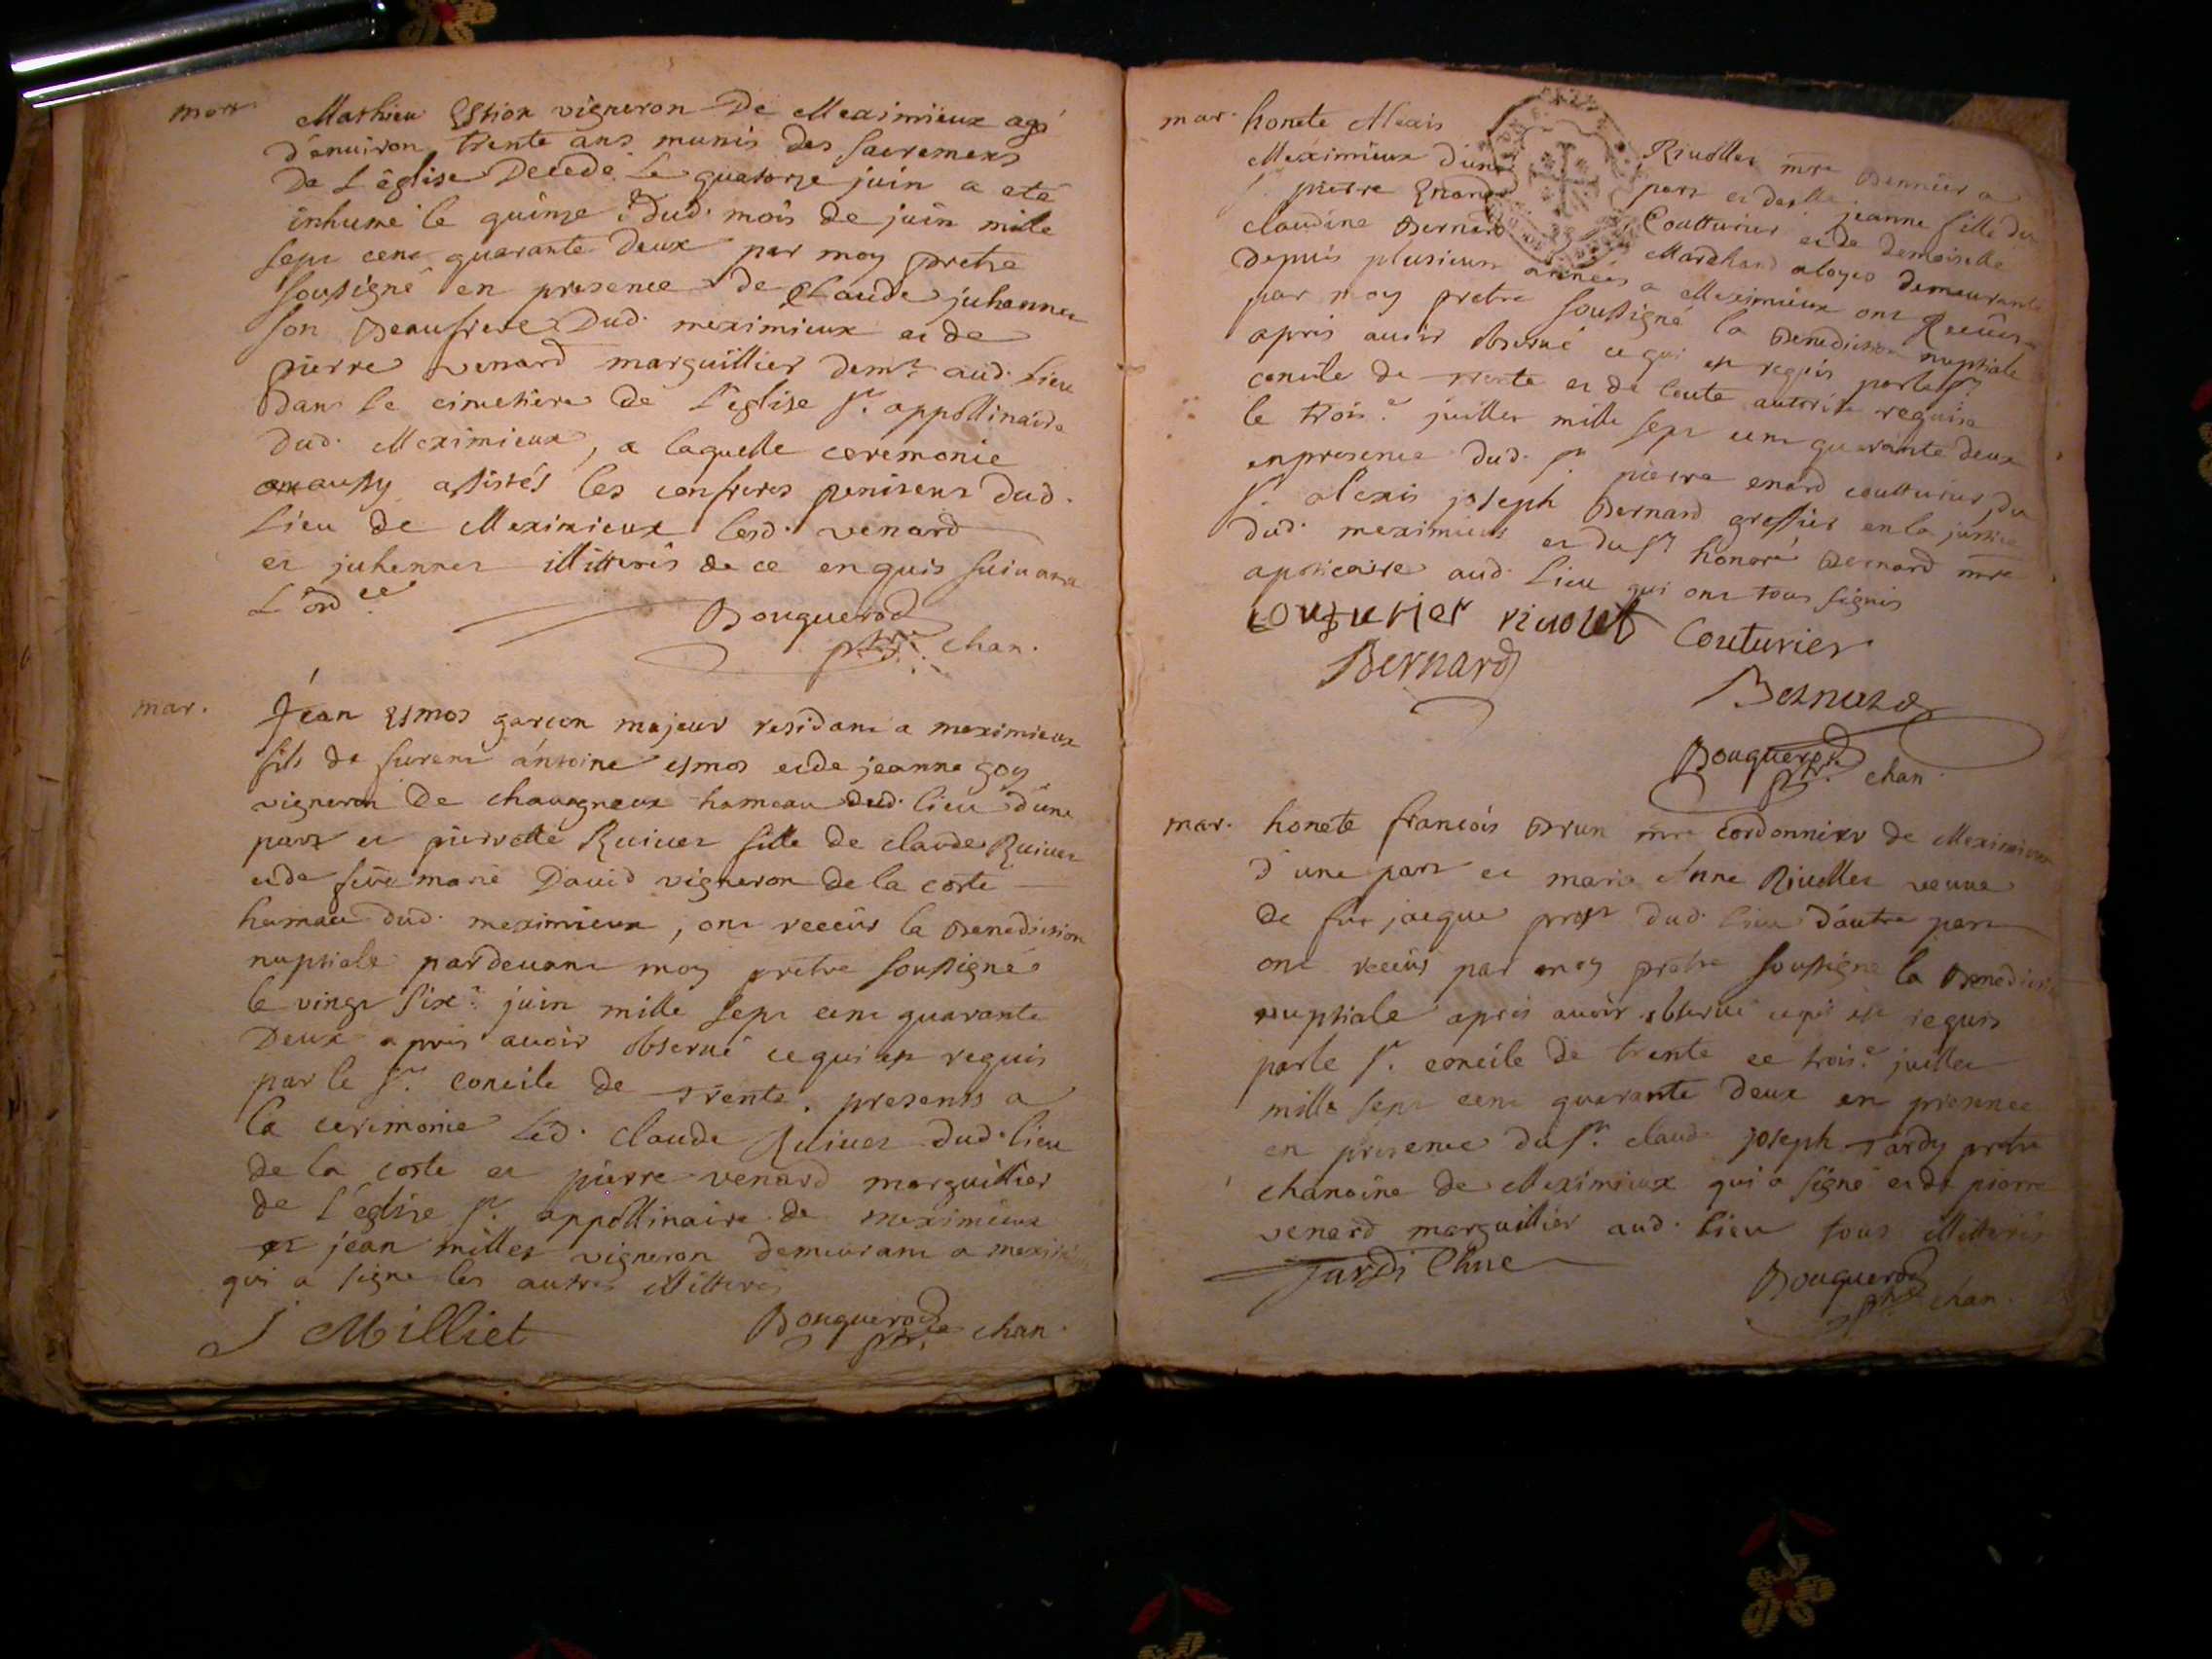 mort
Mathieu Estion vigneron De Meximieux agé
d'enuiron trente ans munis des sacremens
De L'église Decedé Le quatorze juin a eté
inhumé le quinze dud. mois de juin mille
sept cent quarante Deux par moy pretre
soussigné en presence de Claude juhennet
son Beaufrere Dud. meximieux et de
pierre venard marguillier demt. aud. Lieu
dans Le cimetiere de L'église St. appollinaire
dud. Meximieux, a laquelle ceremonie
aussy assistés les confreres penitens dud.
Lieu de Meximieux lesd. venard
et juhennet illitterés de ce enquis suivant
L'ordce
Bouquerod
ptre. chan.
mar.
Jean Esmos garcon majeur residant a meximieux
fils de antoine esmos et de jeanne goy
vigneron De chavagneux hameau dud. lieu d'une
part et pierrette Reiuer fille de claude Reiuer
et de feue marie Dauid vigneron de la coste
hameau dud. meximieux, ont receus la Benediction
nuptiale pardeuant moy pretre soussigné
le vingt sixe. juin mille sept cent quarante
Deux apres auoir obserué ce qui est requis
par le St. concile de Trente. presents a
la ceremonie led. claude Reiuer dud. lieu
de la coste et pierre venard marguillier
de l'église St. appollinaire de meximieux
et jean millet vigneron demeurant a
qui a signé les autres illitteres
J Milliet
Bouquerod ptre chan.
mar.
honete Alexis Riuollet mre Bennier a
Meximieux d'une part et jeanne fille du
S. pierre Enard Coutturier et de demoiselle
claudine Bernard Marchand demeurants
depuis plusieurs années a Meximieux ont Receus
par moy pretre soussigné la Benediction nuptiale
apres auoir obserué ce qui est requis par le St.
concile de trente et de toute autorité requise
le trois.e juillet mille sept cent quarante deux
en presence dud. Sr. pierre enard coutturier, du
Sr. alexis joseph Bernard greffier en la justice
dud. meximieux et du Sr honoré Bernard mre
apoticaire aud. Lieu qui ont tous signés
couturier riuolet Couturier
Bernard
Bernard
Bouquerod
ptr. chan.
mar.
honete francois Brun mre Cordonnier de Meximieux
d'une part et marie Anne Riuollet veuue
de feu jacque prost dud. lieu d'autre part
ont receus par moy pretre soussigné la Benediction
nuptiale apres auoir obserué ce qui est requis
par le St. concile de trente ce trois.e juillet
mille sept cent quarante deux en presence
en presence du Sr. claude joseph Tardy pretre
chanoine de Meximieux qui a signé et de pierre
venard marguillier aud. lieu tous illitterés
Tardi Chne
Bouquerod
ptre chan.